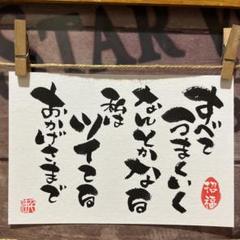 すべて
うまくいく
なんとかなる
私は
ツイてる
おかげさまで
招福
STAR W